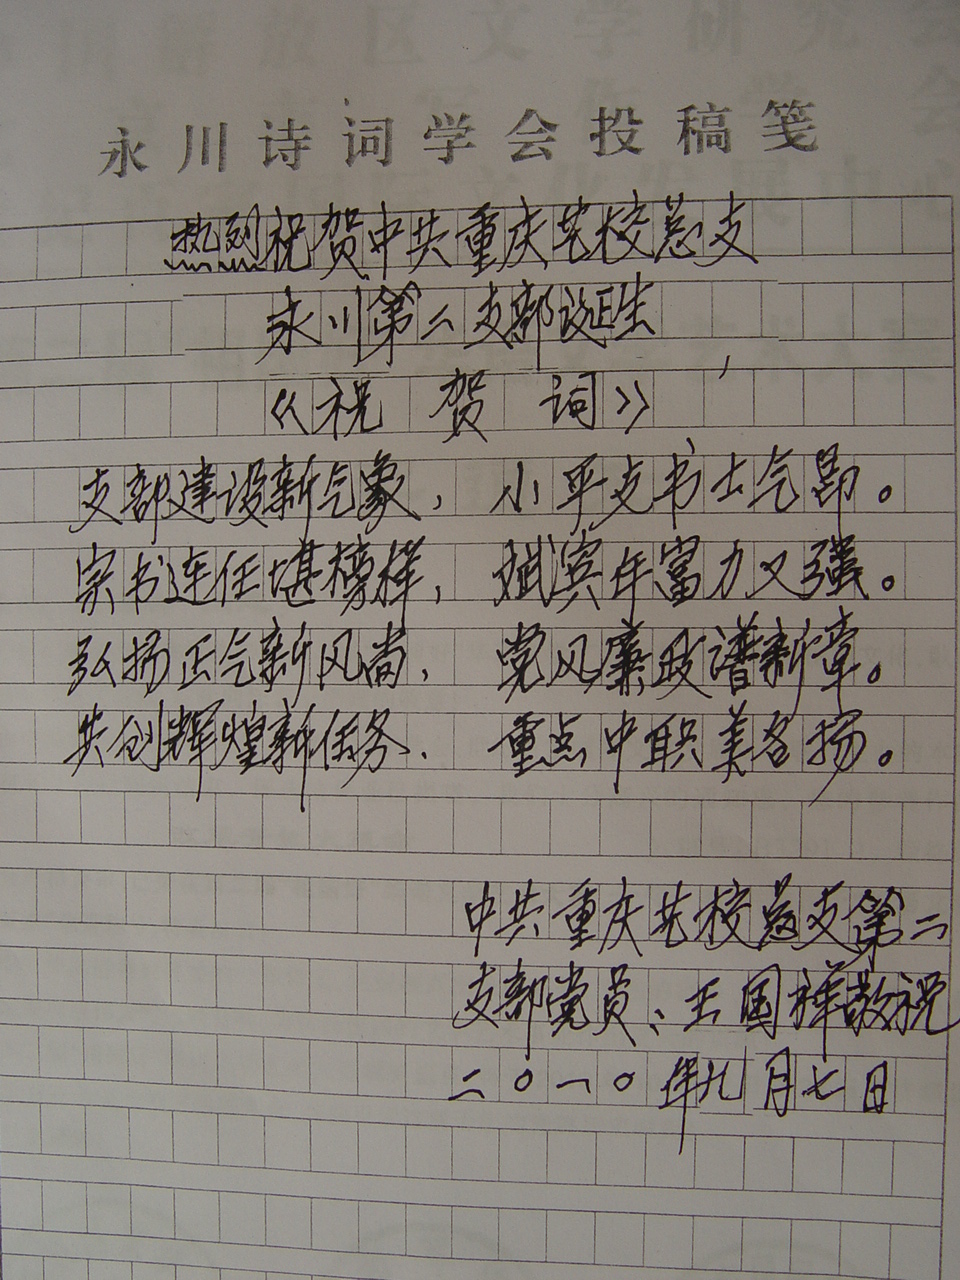 永川诗词学会投稿笺
热烈祝贺中共重庆艺校总支
永川第二支部诞生
《祝贺词》
支部建设新气象， 小平支书士气昂。
宗书连任堪榜样， 斌滨年富力又强。
弘扬正气新风尚， 党风廉政谱新章。
共创辉煌新任务． 重点中职美名扬。
中共重庆艺校总支第二
支部党员、王国祥敬祝
二〇一〇年九月七日